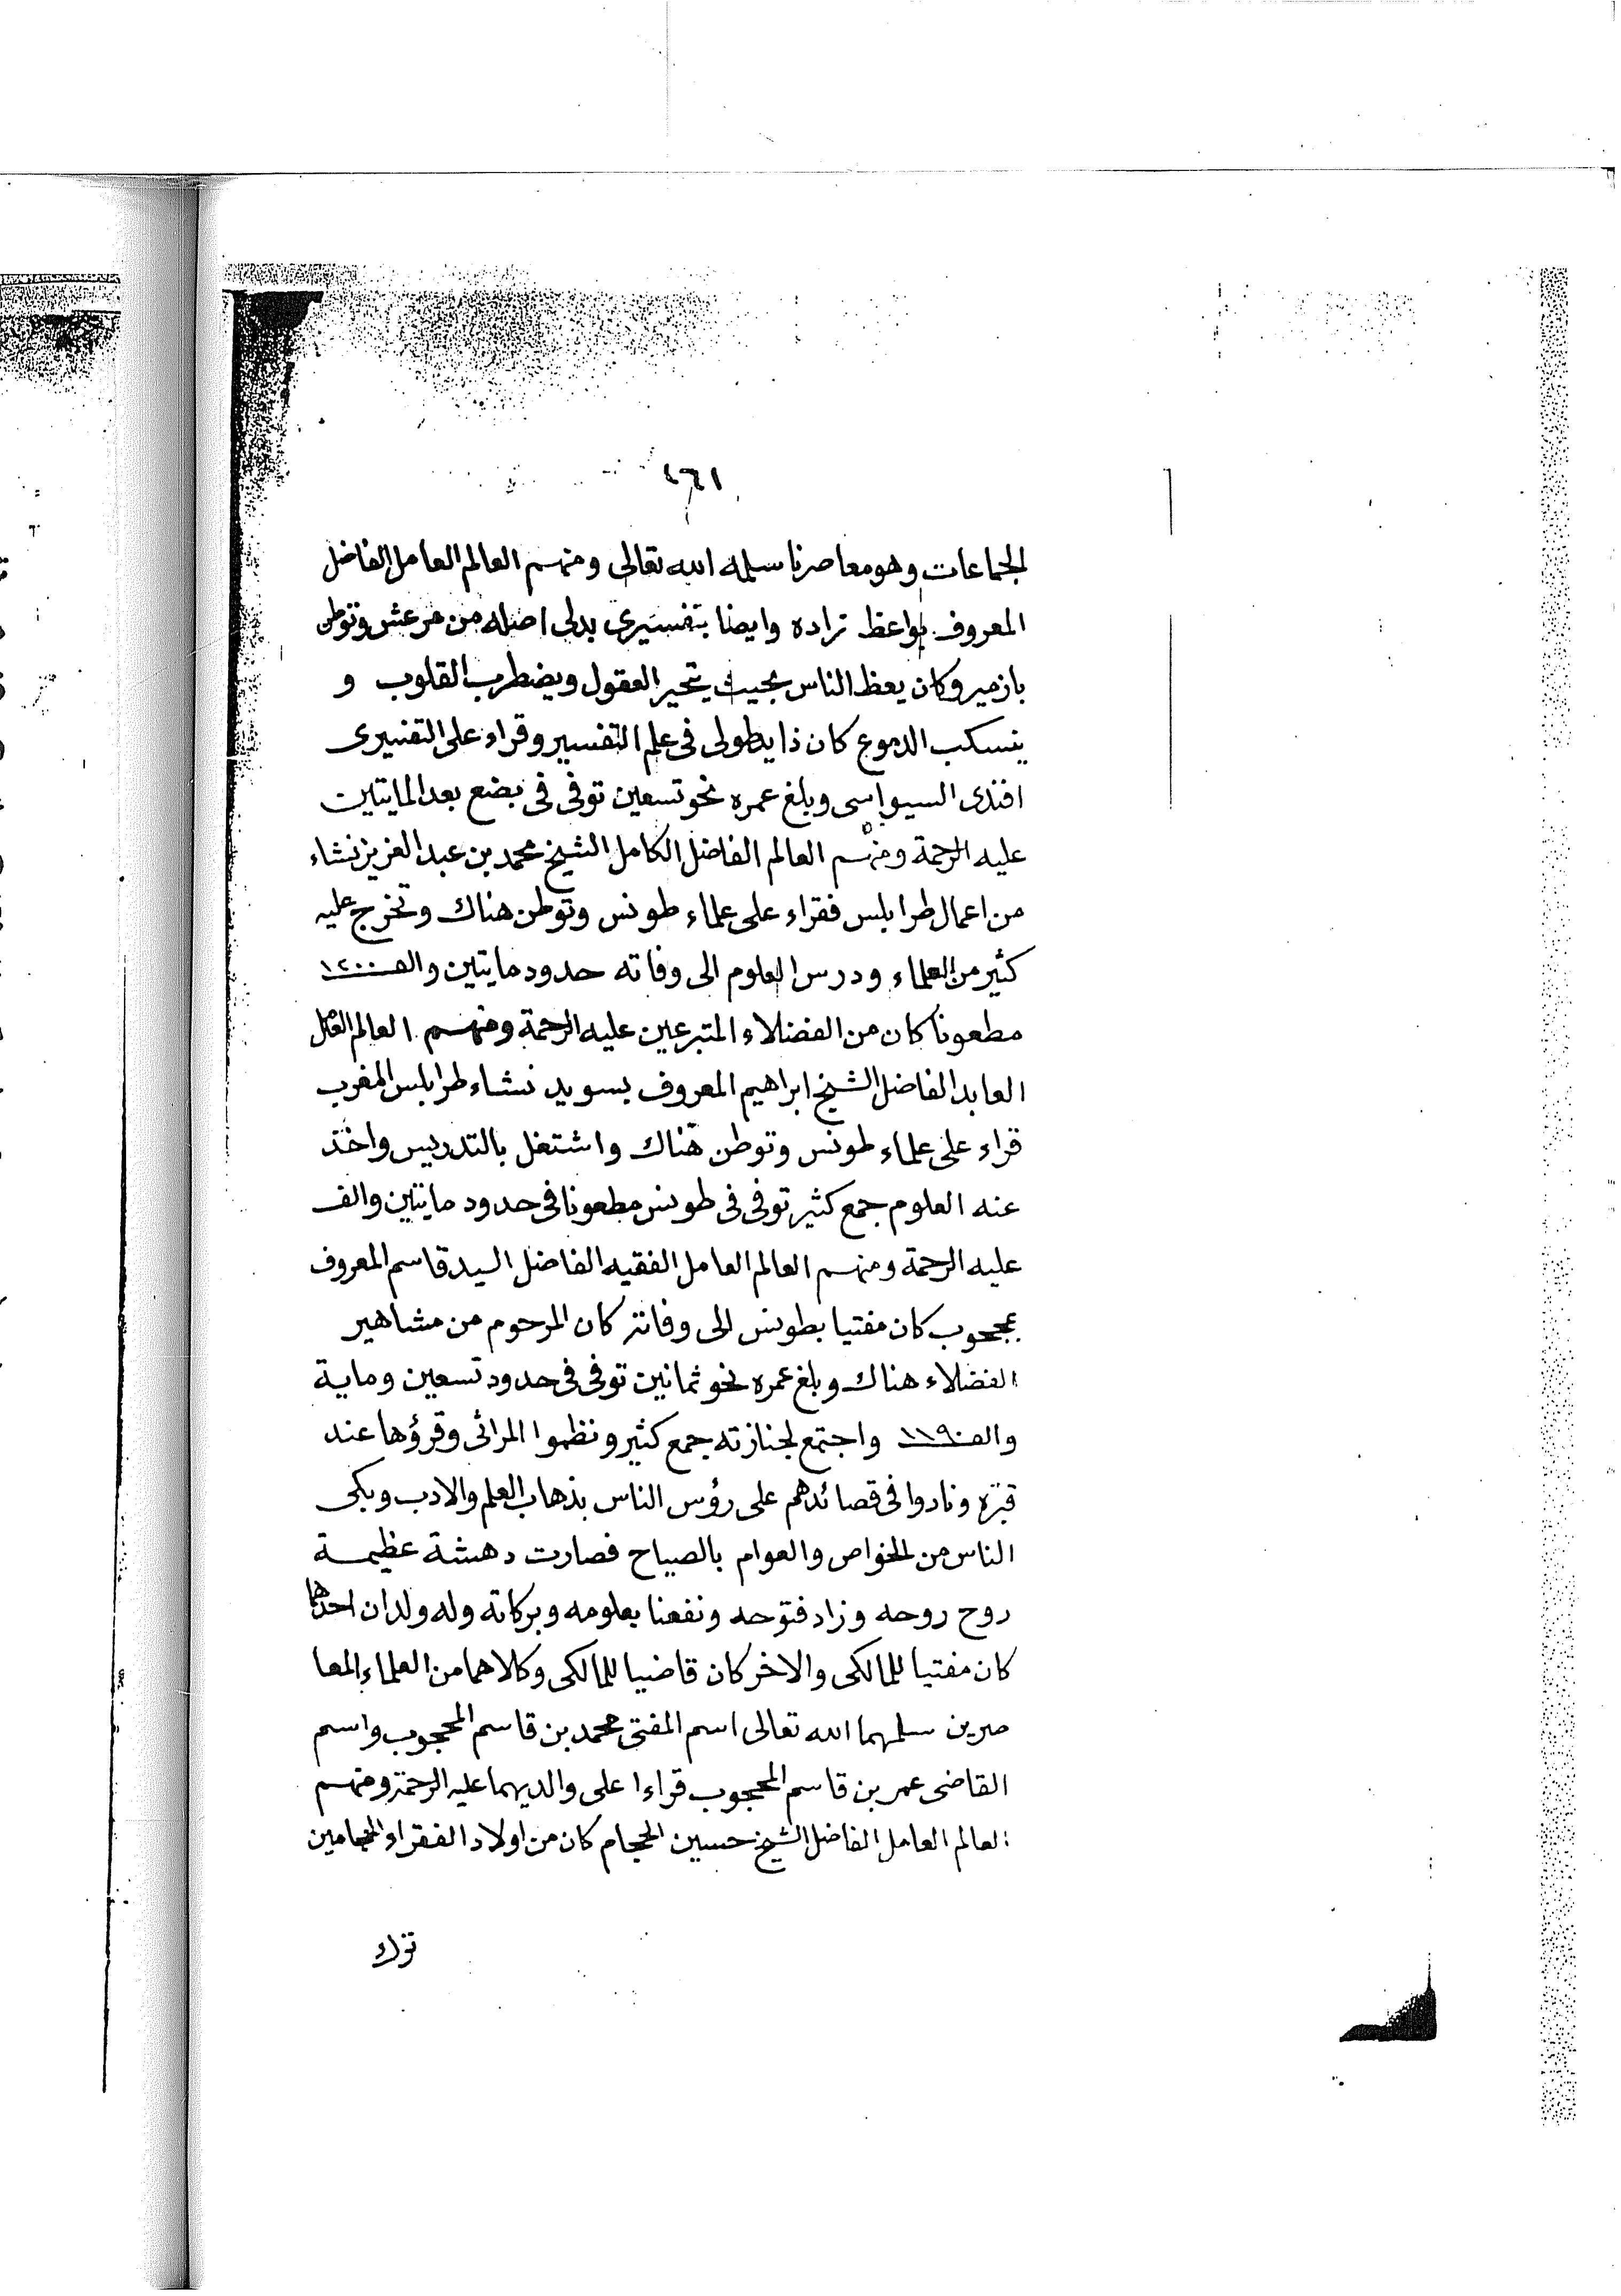 ٤٦١
الجماعات وهو معاصرنا سلمه الله تعالى ومنهم العالم العامل الفاضل
المعروف بواعظ زاده وايضا بتفسيرى بدلى اصله من مرعش وتوطن
بازمير وكان يعظ الناس بحيث يتحير العقول ويضطرب القلوب و
ينسكب الدموع كان ذا يد طولى فى علم التفسير وقراء على التفسيرى
افندى السيواسى وبلغ عمره نحو تسعين توفى فى بضع بعد المايتين
عليه الرحمة ومنهم العالم الفاضل الكامل الشيخ محمد بن عبد العزيز نشاء
من اعمال طرابلس فقراء على علماء طونس وتوطن هناك وتخرج عليه
كثير من العلماء ودرس العلوم الى وفاته حدود مايتين والف ١٢٠٠
مطعونا كان من الفضلاء المتبرعين عليه الرحمة ومنهم العالم العامل
العابد الفاضل الشيخ ابراهيم المعروف بسويد نشاء طرابلس المغرب
قراء على علماء طونس وتوطن هناك واشتغل بالتدريس واخذ
عنه العلوم جمع كثير توفى فى طونس مطعونا فى حدود مايتين والف
عليه الرحمة ومنهم العالم العامل الفقيه الفاضل السيد قاسم المعروف
بمحجوب كان مفتيا بطونس الى وفاته كان المرحوم من مشاهير
الفضلاء هناك وبلغ عمره نحو ثمانين توفى فى حدود تسعين وماية
والف ١١٩٠ واجتمع لجنازته جمع كثير ونظموا المراثى وقرؤها عند
قبره ونادوا فى قصائدهم على رؤس الناس بذهاب العلم والادب وبكى
الناس من الخواص والعوام بالصياح فصارت دهشة عظيمة
روح روحه وزاد فتوحه ونفعنا بعلومه وبركاته وله ولدان احدهما
كان مفتيا للمالكى والاخر كان قاضيا للمالكى وكلاهما من العلماء المعا
صرين سلمهما الله تعالى اسم المفتى محمد بن قاسم المحجوب واسم
القاضى عمر بن قاسم المحجوب قراءا على والديهما عليه الرحمة ومنهم
العالم العامل الفاضل الشيخ حسين الحجام كان من اولاد الفقراء الحجامين
ترك